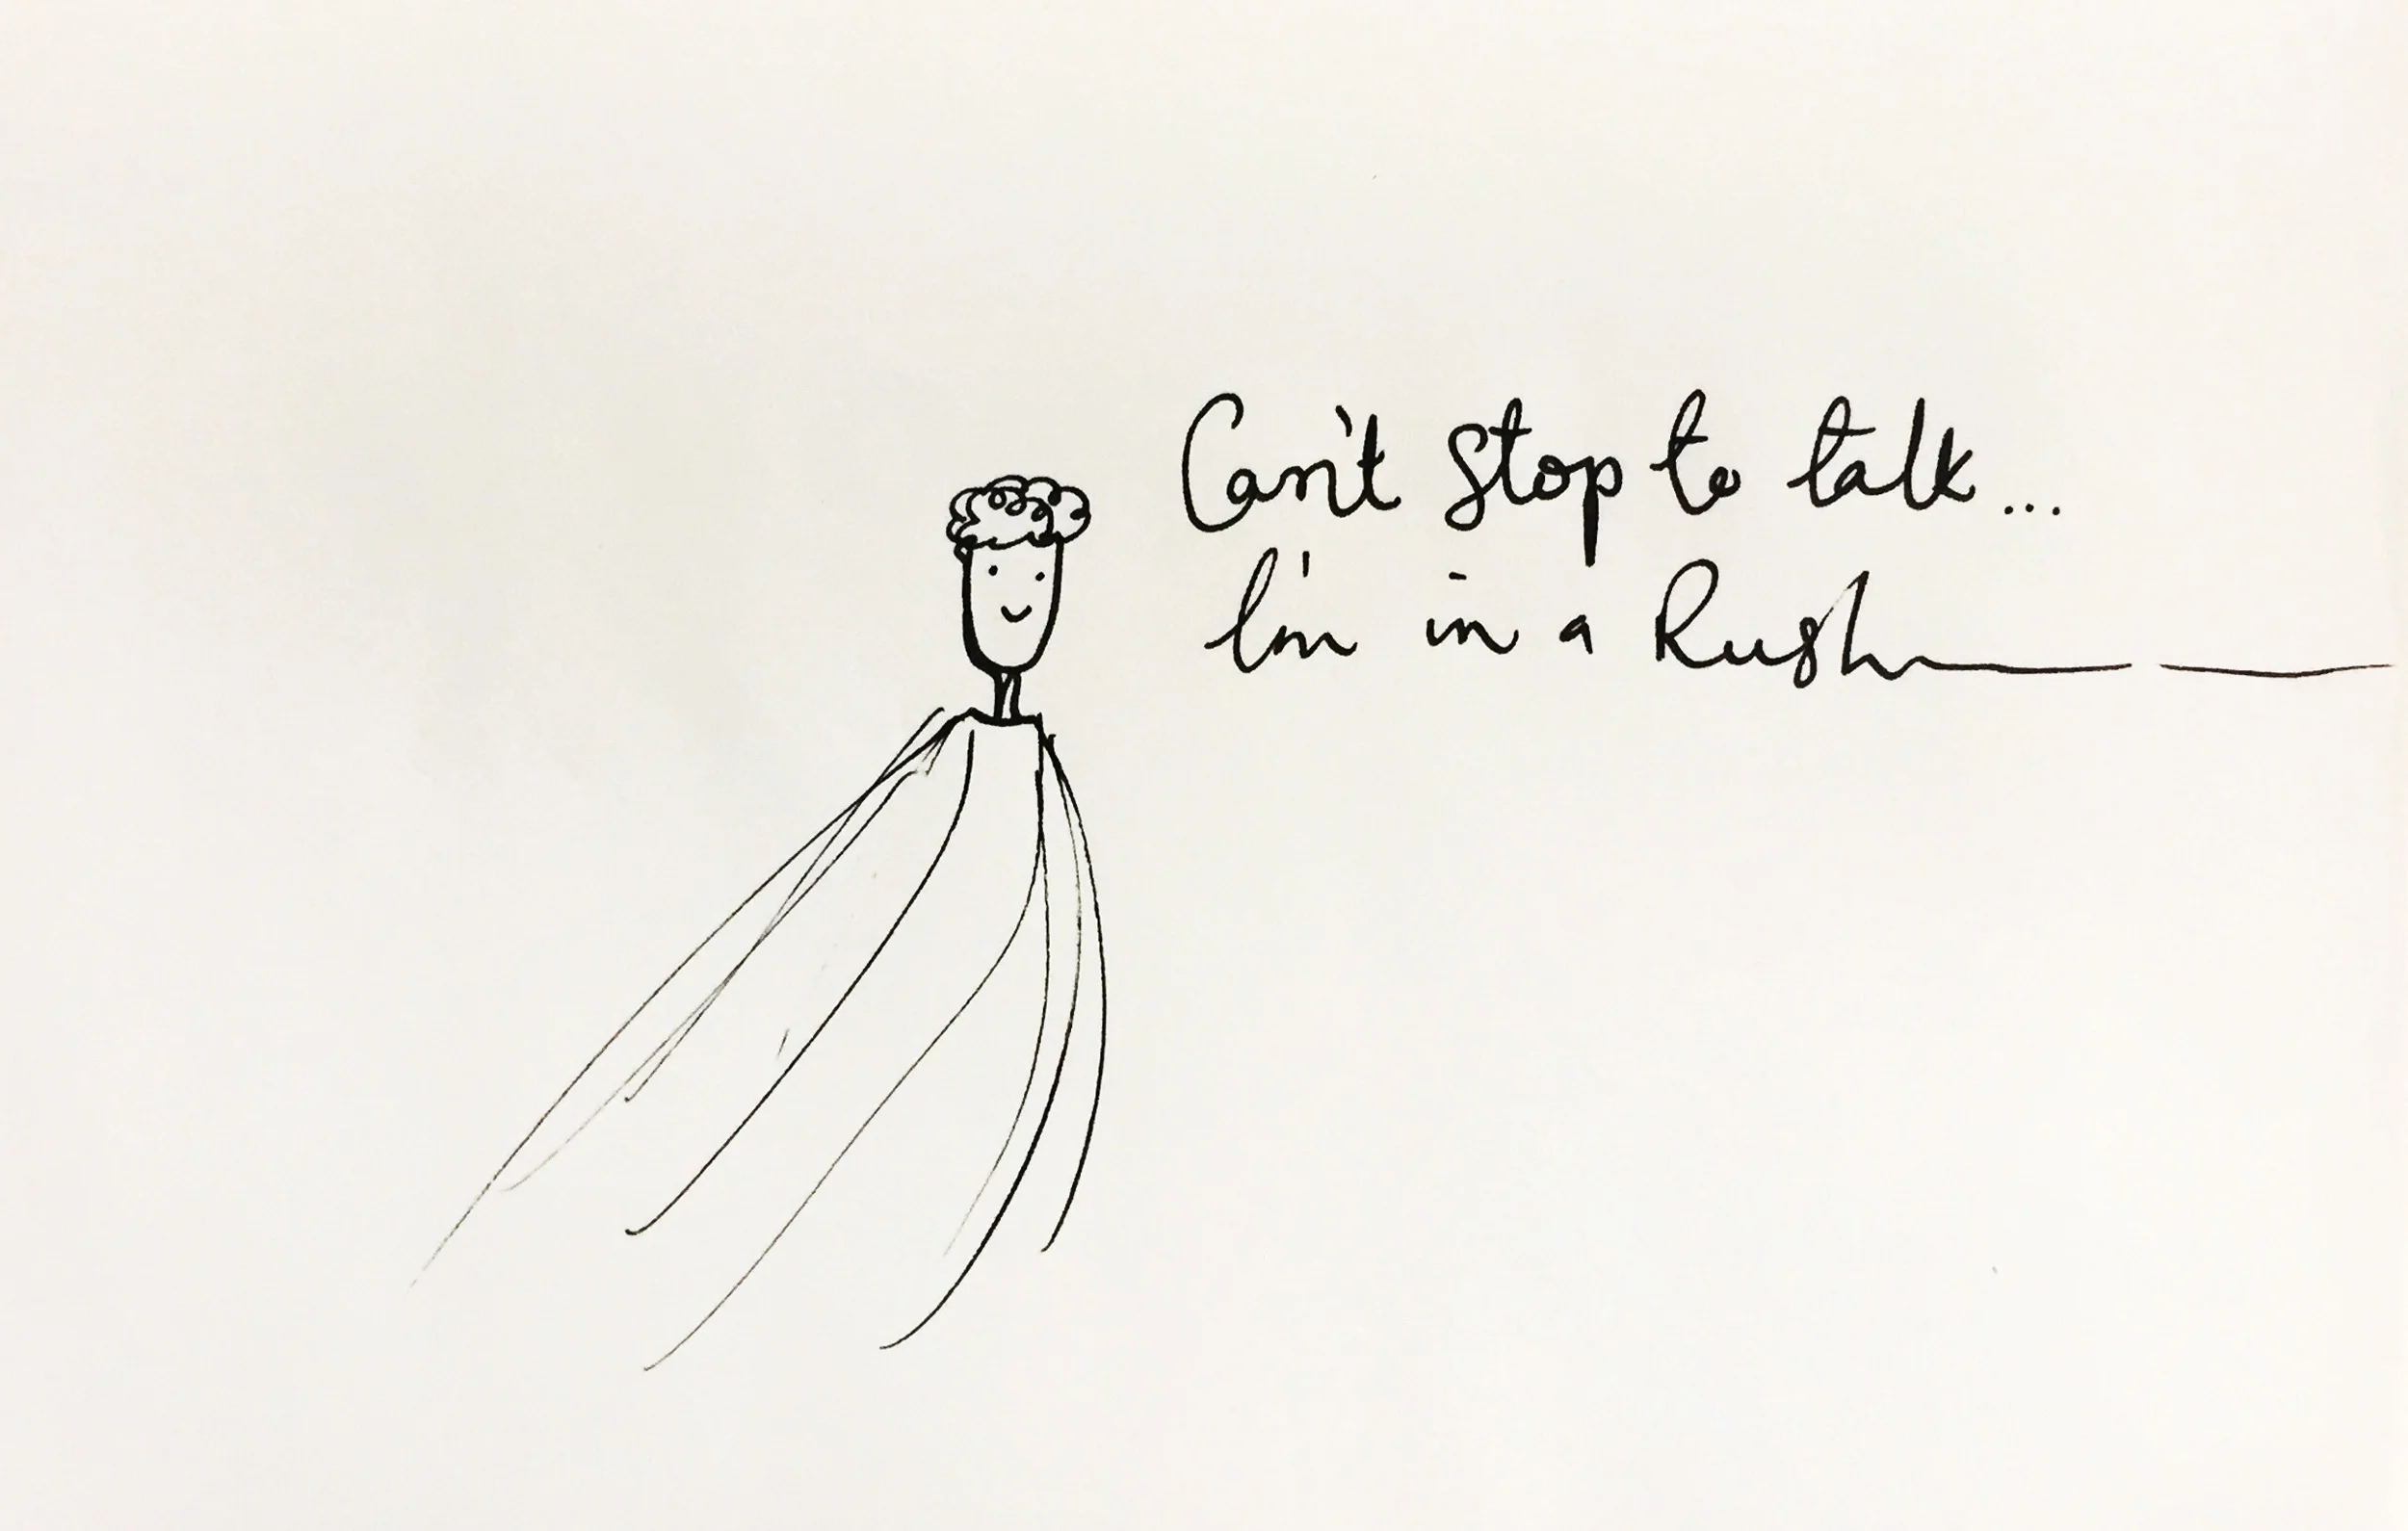 Can't stop to talk...
I'm in a Rush